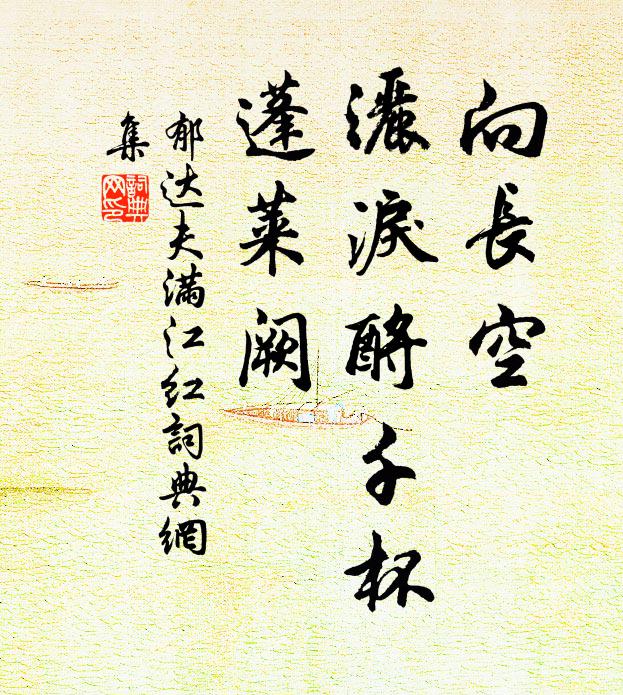 向長空
灑淚酹千杯
蓬萊闕
郁达夫满江红詞典網
集
詞典
网印